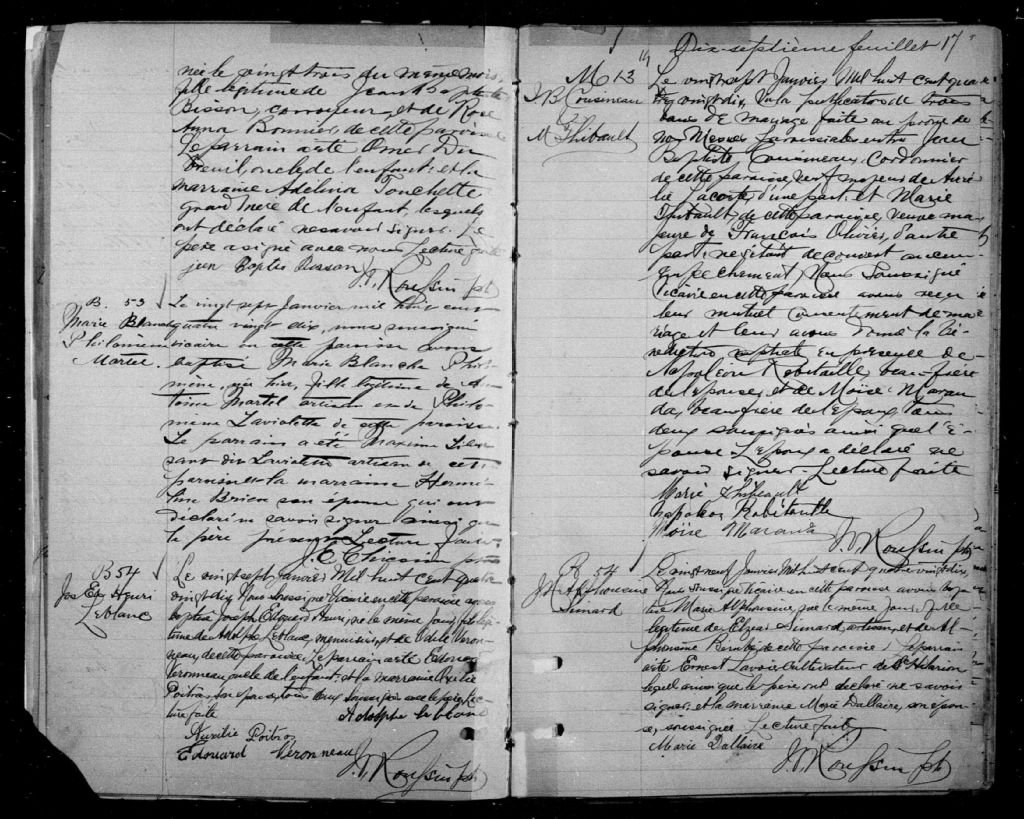 née le vingt trois du même mois,
fille légitime de Jean Baptiste
Bisson, corroyeur, et de Rose
Anna Bonnier de cette paroisse
Le parrain a été Omer Du
breuil oncle de l'enfant et la
marraine Adelina Touchette
grand mère de l'enfant, lesquels
ont déclaré ne savoir signer. Le
père a signé avec nous Lecture faite
jean Baptis Bisson
J. V. Roussin ptr
B. 53
Marie Blanche
Philomène
Martel.
Le vingt sept Janvier mil huit cent
quatre vingt dix, nous soussigné
vicaire en cette paroisse avons
baptisé Marie Blanche Philo
mène, née hier, fille légitime de An
toine Martel artisan et de Philo
mène Laviolette de cette paroisse.
Le parrain a été Maxime
dit Laviolette artisan de cette
paroisse et la marraine Hermé
line Brien son épouse qui ont
déclaré ne savoir signer ainsi que
le père présent. Lecture faite.
ptre
B 54
Jos Ed. Henri
Leblanc
Le vingt sept janvier Mil huit cent quatre
vingt dix Nous soussigné Vicaire en cette paroisse avons
baptisé Joseph Edouard Henri, né le même jour, fils légi
time de Adolphe Leblanc, menuisier, et de Odele Véron
neau, de cette paroisse. Le parrain a été Edouard
Véronneau oncle de l'enfant et la marraine Auxilie
Poitras tous soussignés avec le père. Lec
ture faite
Adolphe Leblanc
Auxilie Poitras
Edouard Véronneau
J. V. Roussin ptr
Dix-septième feuillet 17
M 13
J. B. Cousineau
&
M. Thibault
Le vingt sept Janvier Mil huit cent qua
tre vingt dix, Vu la publication de trois
bans de mariage faite au prône de
nos Messes paroissiales entre Jean
Baptiste Cousineau, Cordonnier
de cette paroisse, veuf majeur de Auré
lie Lacoste, d'une part; et Marie
Thibault, de cette paroisse, Veuve ma
jeure de François Olivier, d'autre
part; ne s'étant découvert aucun
empêchement, Nous Soussigné
Vicaire en cette paroisse avons reçu
leur mutuel consentement de ma
riage et leur avons donné la bé
nédiction nuptiale en présence de
Napoléon Robitaille beau-frère
de l'épouse, et de Moïse Maran
da, beau frère de l'Epoux, tous
deux soussignés ainsi que l'É
pouse. L'époux a déclaré ne
savoir signer. Lecture faite
Marie thibeault
Napoléon Robitaille
Moïse Maranda
J. V. Roussin ptr
B. 54
M. Alphonsine
Simard
Le vingt neuf Janvier Mil huit cent quatre vingt dix,
Nous Soussigné Vicaire en cette paroisse avons bap
tisé Marie Alphonsine, née le même jour, fille
légitime de Elzéar Simard, artisan, et de Al
phonsine de cette paroisse. Le parrain
a été Ernest Lavoie Cultivateur de St Hilarion
lequel ainsi que le père ont déclaré ne savoir
signer, et la marraine Marie Dallaire, son épou
se, soussignée. Lecture faite
Marie Dallaire
J. V. Roussin ptr